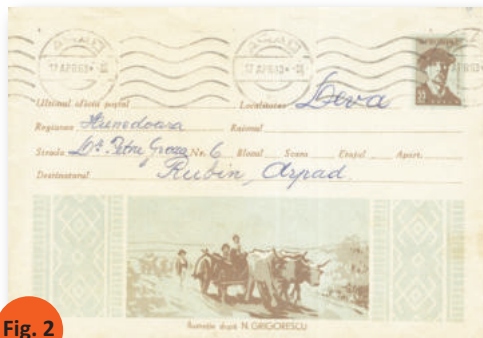 ARAD ARAD
17 APR 63 17 APR 63
Ultimul oficiu poștal Localitatea Deva
Regiunea Hunedoara Raionul
Strada Dr. Petru Groza Nr. 6 Blocul Scara Etajul Apart.
Destinatarul Rubin, Arpad
Ilustrație după N. GRIGORESCU
Fig. 2